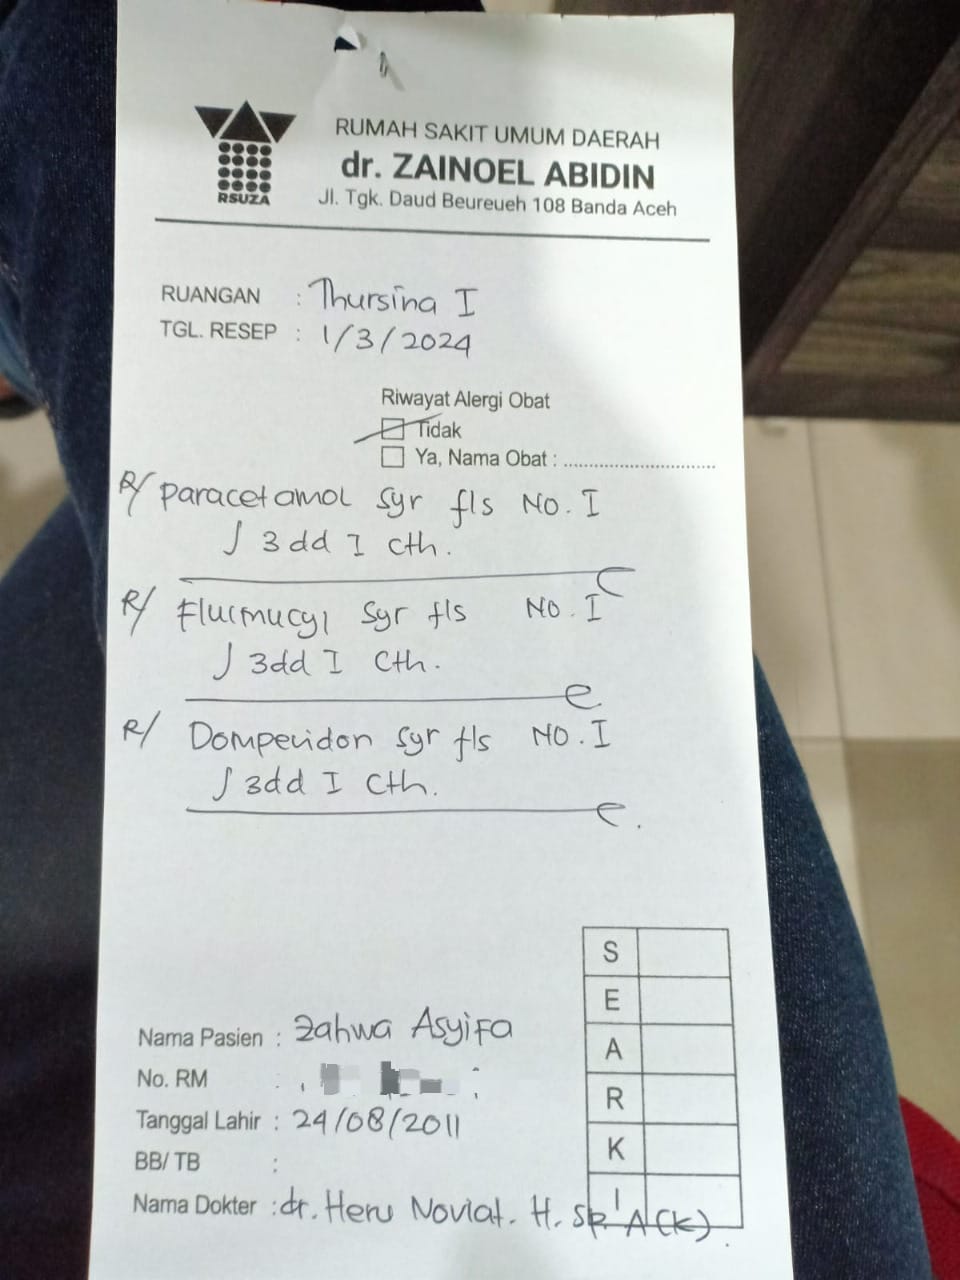 RUMAH SAKIT UMUM DAERAH
dr. ZAINOEL ABIDIN
RSUZA
Jl. Tgk. Daud Beureueh 108 Banda Aceh
RUANGAN : Thursina I
TGL. RESEP : 1/3/2024
Riwayat Alergi Obat
Tidak
Ya, Nama Obat : ..............................
R/ Paracetamol syr fls No. I
ʃ 3 dd I Cth.
R/ Fluimucyl syr fls No. I
ʃ 3dd I Cth.
R/ Domperidon syr fls No. I
ʃ 3dd I Cth.
S
E
A
R
K
I
Nama Pasien : Zahwa Asyifa
No. RM :
Tanggal Lahir : 24/08/2011
BB/ TB :
Nama Dokter : dr. Heru Noviat. H. Sp. A (K)